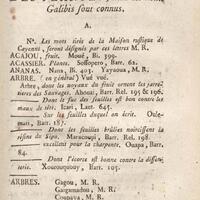 Galibis sont connus.
A.
Nª. Les mots tirés de la Maison rustique de
Cayenne, seront désignés par ces lettres M. R.
ACAJOU, fruit. Moué, Bi. 399.
ACASSIER. Plante. Soffopero, Barr. 62.
ANANAS. Nana, Bi. 403. Yayaoua, M. R.
ARBRE. (en général) Vué vué.
Arbre, dont les noyaux du fruit ornent les jarre-
tières des Sauvages. Ahouai, Barr. Rel. 195 &
Dont le suc des feuilles est bon contre les
maux de tête. Icari, Laet. 645.
Sur les feuilles duquel on écrit. Oule-
mari, Barr. 187.
Dont les feuilles brûlées noircissent la
résine du sipo. Maracoupi, Barr. Rel. 198.
excellent pour la charpente, Ouapa, Barr.
84.
Dont l'écorce est bonne contre la dissen-
terie. Xourouquouy, Barr. 105.
ARBRES. Gagou, M. R.
Gaigamadou, M. R.
Coupaya, M. R.